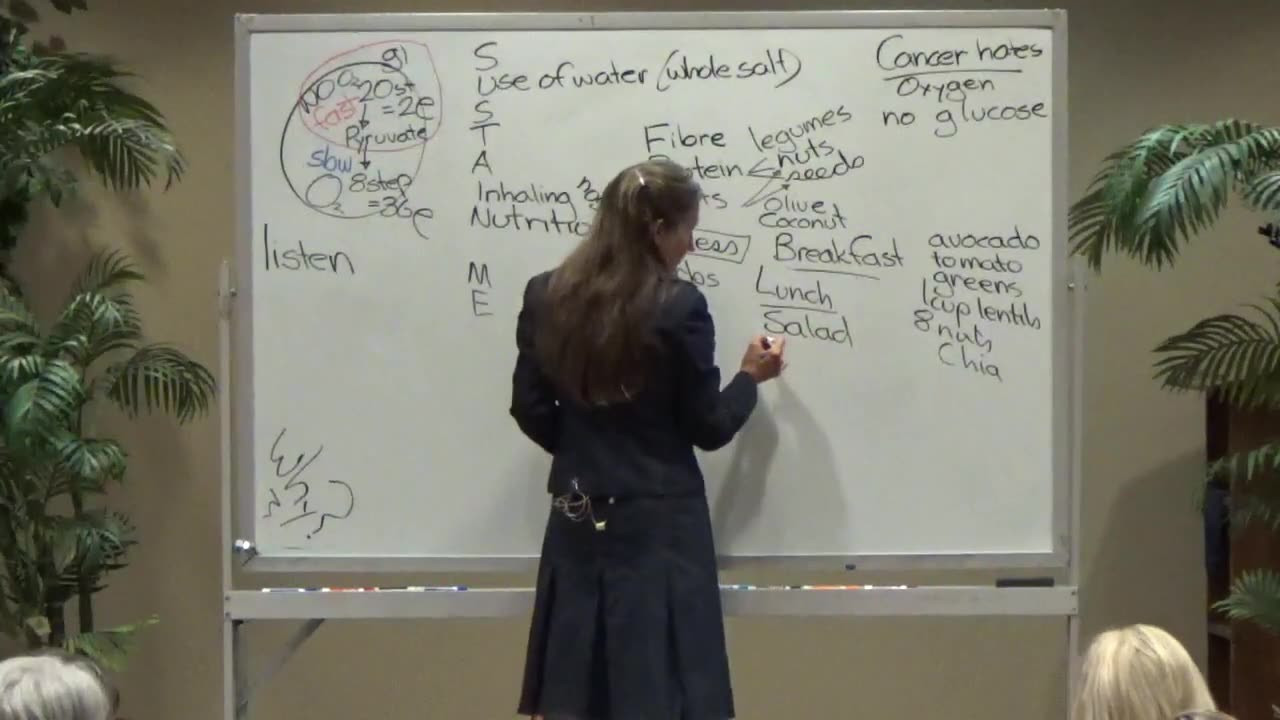 NO O₂ 20st
= 2e
fast
Pyruvate
slow
O₂ 8 step
= 36e
listen
S
use of water (whole salt)
S
T
A
Inhaling
Nutritio
M
E
Fibre
tein
ts
ess
bs
legumes
nuts
seeds
Olive
Coconut
Breakfast
Lunch
Salad
Cancer hates
Oxygen
no glucose
avocado
tomato
greens
1 cup lentils
8 nuts
Chia